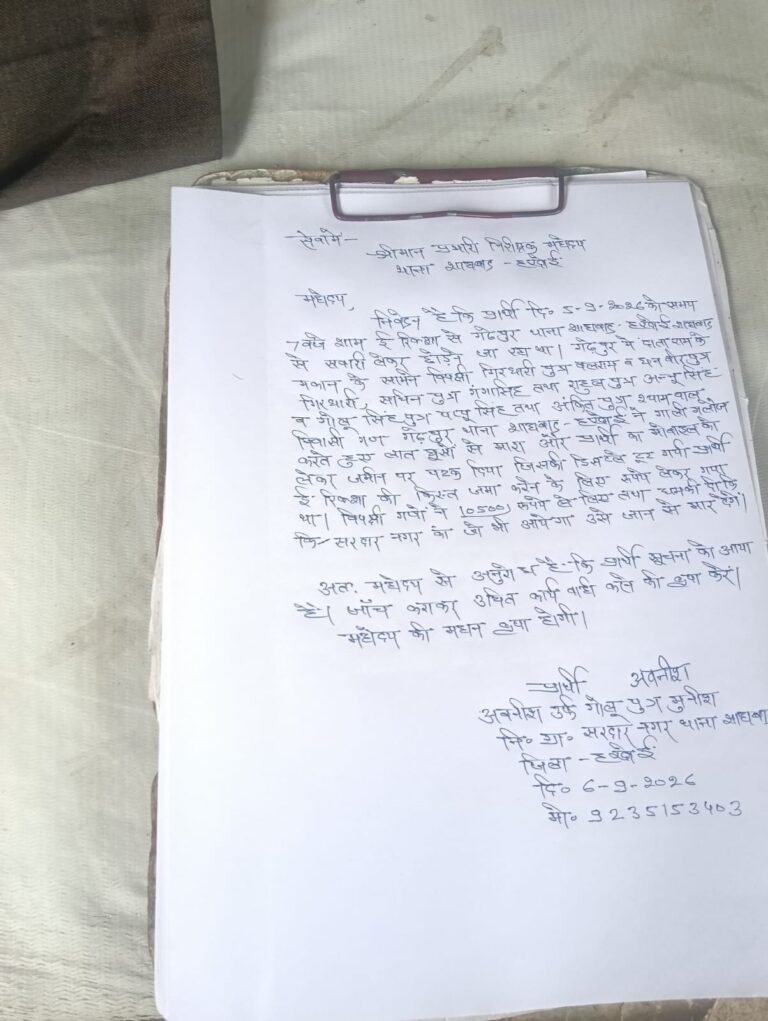 सेवामें -
श्रीमान प्रभारी निरीक्षक महोदय
थाना शाहाबाद - हरदोई
महोदय,
निवेदन है कि प्रार्थी दि० 5-9-2026 को समय
7 बजे शाम ई रिक्शा से गेंदपुर थाना शाहाबाद हरदोई शाहाबाद
से सवारी लेकर छोडने जा रहा था। गेंदपुर में दाताराम के
मकान के सामने विपक्षी गिरधारी पुत्र बलराम व पुत्र
गिरधारी, सचिन पुत्र गंगासिंह तथा राहुल पुत्र अन्नू सिंह
व गोलू सिंह पुत्र पप्पू सिंह तथा अंकित पुत्र श्यामबाबू
निवासी गण गेंदपुर थाना शाहाबाद - हरदोई ने गाली गलौज
करते हुए लात घूसों से मारा और प्रार्थी का मोबाइल को
लेकर जमीन पर पटक दिया जिसकी डिसप्ले टूट गयी प्रार्थी
ई रिक्शा की किस्त जमा करने के लिए रूपये लेकर गया
था। विपक्षी गणों ने 10500 रूपये ले लिए तथा धमकी दी कि
कि - सरदार नगर का जो भी आयेगा उसे जान से मार देंगे।
अतः महोदय से अनुरोध है कि प्रार्थी सूचना को आया
है। जाँच कराकर उचित कार्यवाही करने की कृपा करें।
महोदय की महान कृपा होगी।
प्रार्थी अवनीश
अवनीश उर्फ गोलू पुत्र मुनीश
नि० ग्रा० सरदार नगर थाना शाहाबा
जिला - हरदोई
दि० 6-9-2026
मो० 9235153403